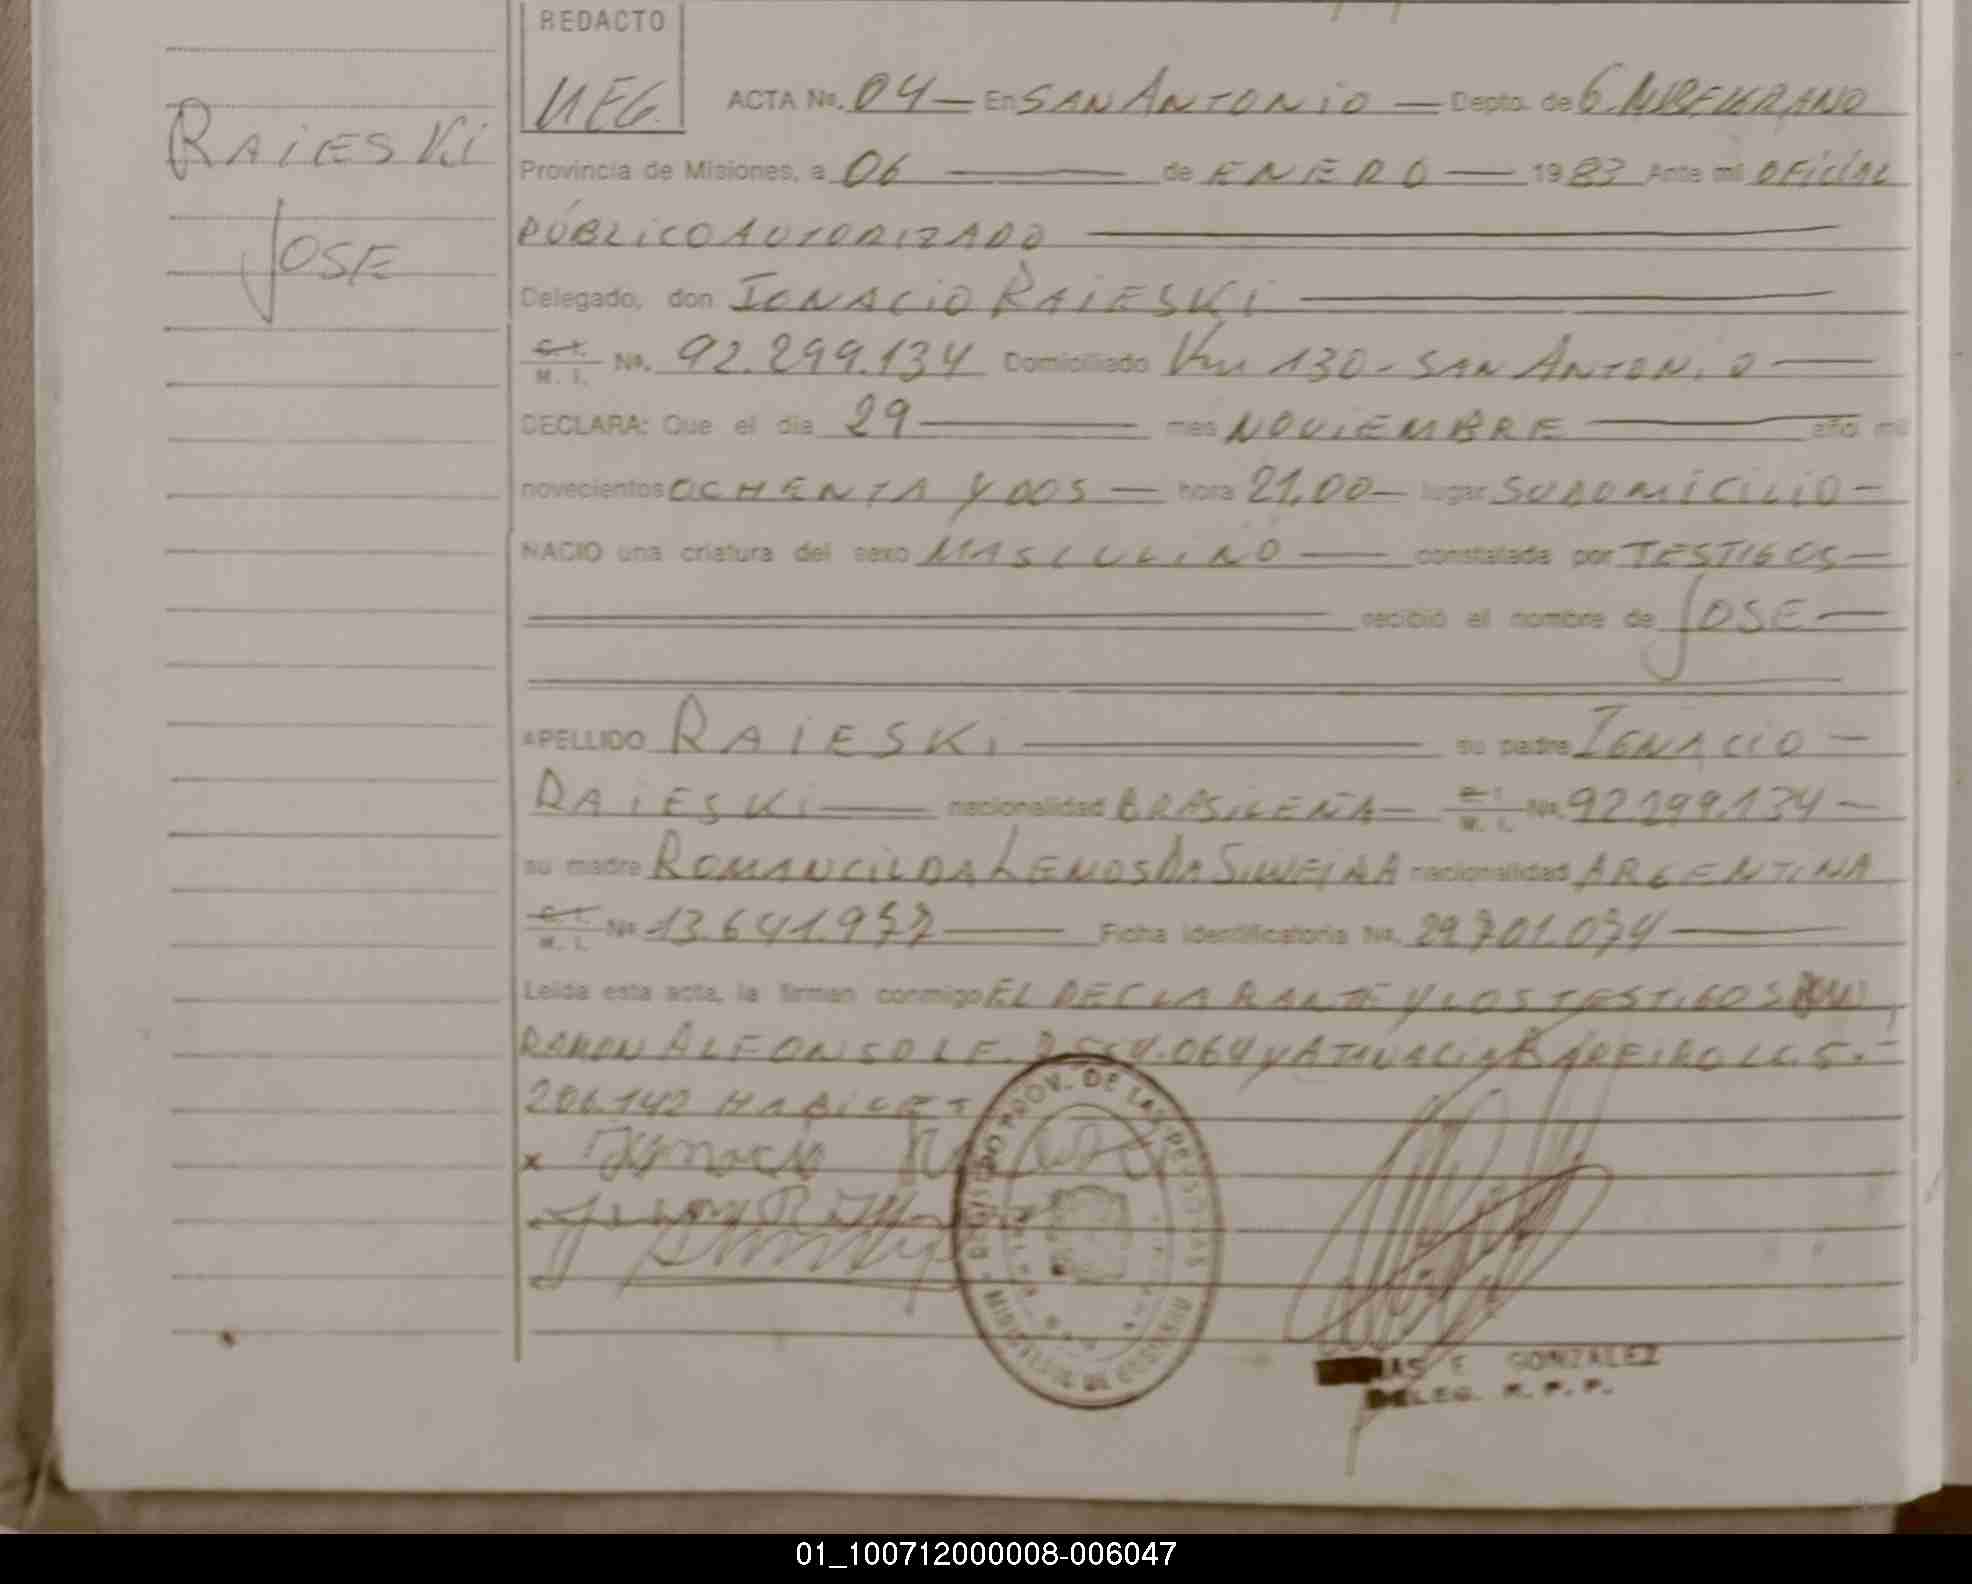 RAIESKI
JOSE
REDACTO
UEG.
ACTA No. 04 — En SAN ANTONIO — Depto. de G. M. BELGRANO
Provincia de Misiones, a 06 — de ENERO — 1983 Ante mi OFICIAL
PÚBLICO AUTORIZADO —
Delegado, don IGNACIO RAIESKI —
C. I. M. I. No. 92.299.134 Domiciliado Km 130 - SAN ANTONIO —
DECLARA: Que el día 29 — mes NOVIEMBRE — año mil
novecientos OCHENTA Y DOS — hora 21,00 — lugar SU DOMICILIO —
NACIO una criatura del sexo MASCULINO — constatada por TESTIGOS —
recibió el nombre de JOSE —
APELLIDO RAIESKI — su padre IGNACIO —
RAIESKI — nacionalidad BRASILEÑA — C. I. M. I. No. 92.299.134 —
su madre ROMANCILDA LEMOS DA nacionalidad ARGENTINA
C. I. M. I. No 13.641.977 — Ficha identificatoria No. 29.701.074 —
Leída esta acta, la firman conmigo EL DECLARANTE Y LOS TESTIGOS
RAMON ALFONSO L.E. .064 Y L.C. 5.-
206.142
x Ignacio
REGISTRO PROV. DE LAS PERSONAS
MINISTERIO DE GOBIERNO
E GONZALEZ
DELEG. R. P. P.
01_100712000008-006047